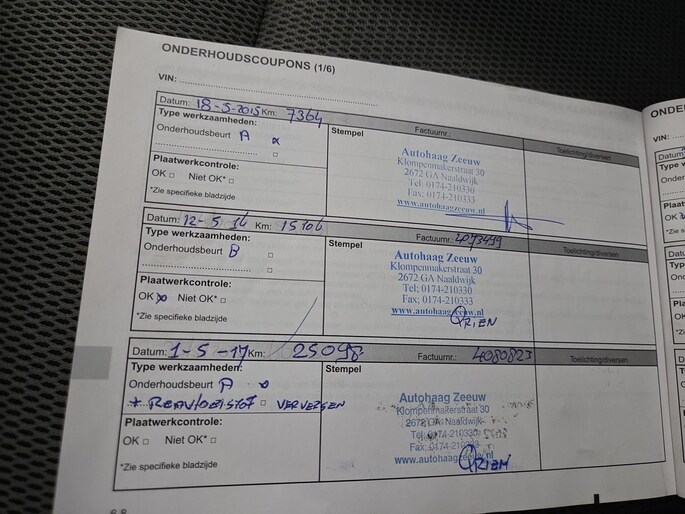 ONDERHOUDSCOUPONS (1/6)
VIN:
Datum: 18-5-2015 Km: 7364 Factuurnr.: Toelichting/diversen
Type werkzaamheden: Stempel
Onderhoudsbeurt A
Plaatwerkcontrole:
OK □ Niet OK* □
*Zie specifieke bladzijde
Autohaag Zeeuw
Klompenmakerstraat 30
2672 GA Naaldwijk
Tel: 0174-210330
Fax: 0174-210333
www.autohaagzeeuw.nl
Datum: 12-5-16 Km: 15106 Factuurnr.: 4073439 Toelichting/diversen
Type werkzaamheden: Stempel
Onderhoudsbeurt B □
Plaatwerkcontrole:
OK Niet OK* □
*Zie specifieke bladzijde
Autohaag Zeeuw
Klompenmakerstraat 30
2672 GA Naaldwijk
Tel: 0174-210330
Fax: 0174-210333
www.autohaagzeeuw.nl
Datum: 1-5-17 Km: 25098 Factuurnr.: 4080823 Toelichting/diversen
Type werkzaamheden: Stempel
Onderhoudsbeurt A
* REMVLOEISTOF □ VERVERSEN
Plaatwerkcontrole:
OK □ Niet OK* □
*Zie specifieke bladzijde
Autohaag Zeeuw
Klompenmakerstraat 30
2672 GA Naaldwijk
Tel: 0174-210330
Fax: 0174-210333
www.autohaagzeeuw.nl
6.8